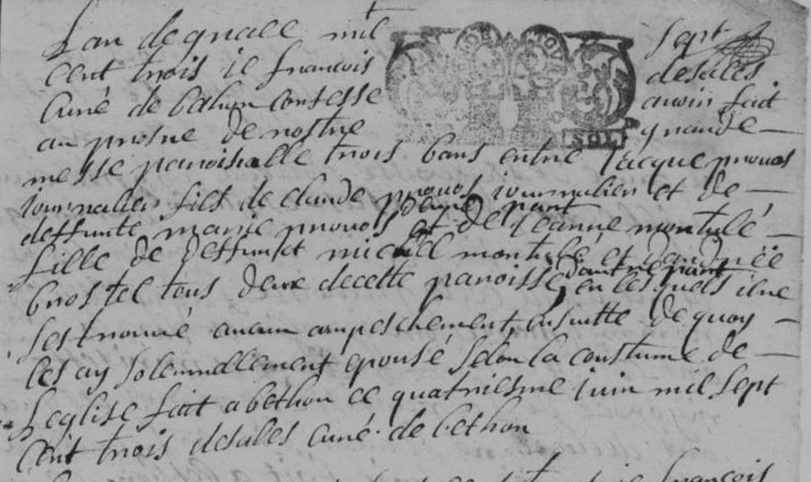 Lan degrace mil sept
cent trois ie francois desales
Curé de bethon confesse avoir fait
au prosne de nostre grande
messe paroissialle trois bans entre Jacque prouos
iournalier fils de claude prouos iournalier et de
deffunte marie prouos d'une part et de Jeanne montulé
fille de deffunct michel montulé et dandrée
brostel tous deux decette paroisse, d'autre part en lesquels il ne
sest trouué aucun ampeschement, ensuitte de quoy
les ay solennellement epousé selon la coustume de
Leglise fait a bethon ce quatriesme iuin mil sept
cent trois desales curé de bethon
francois